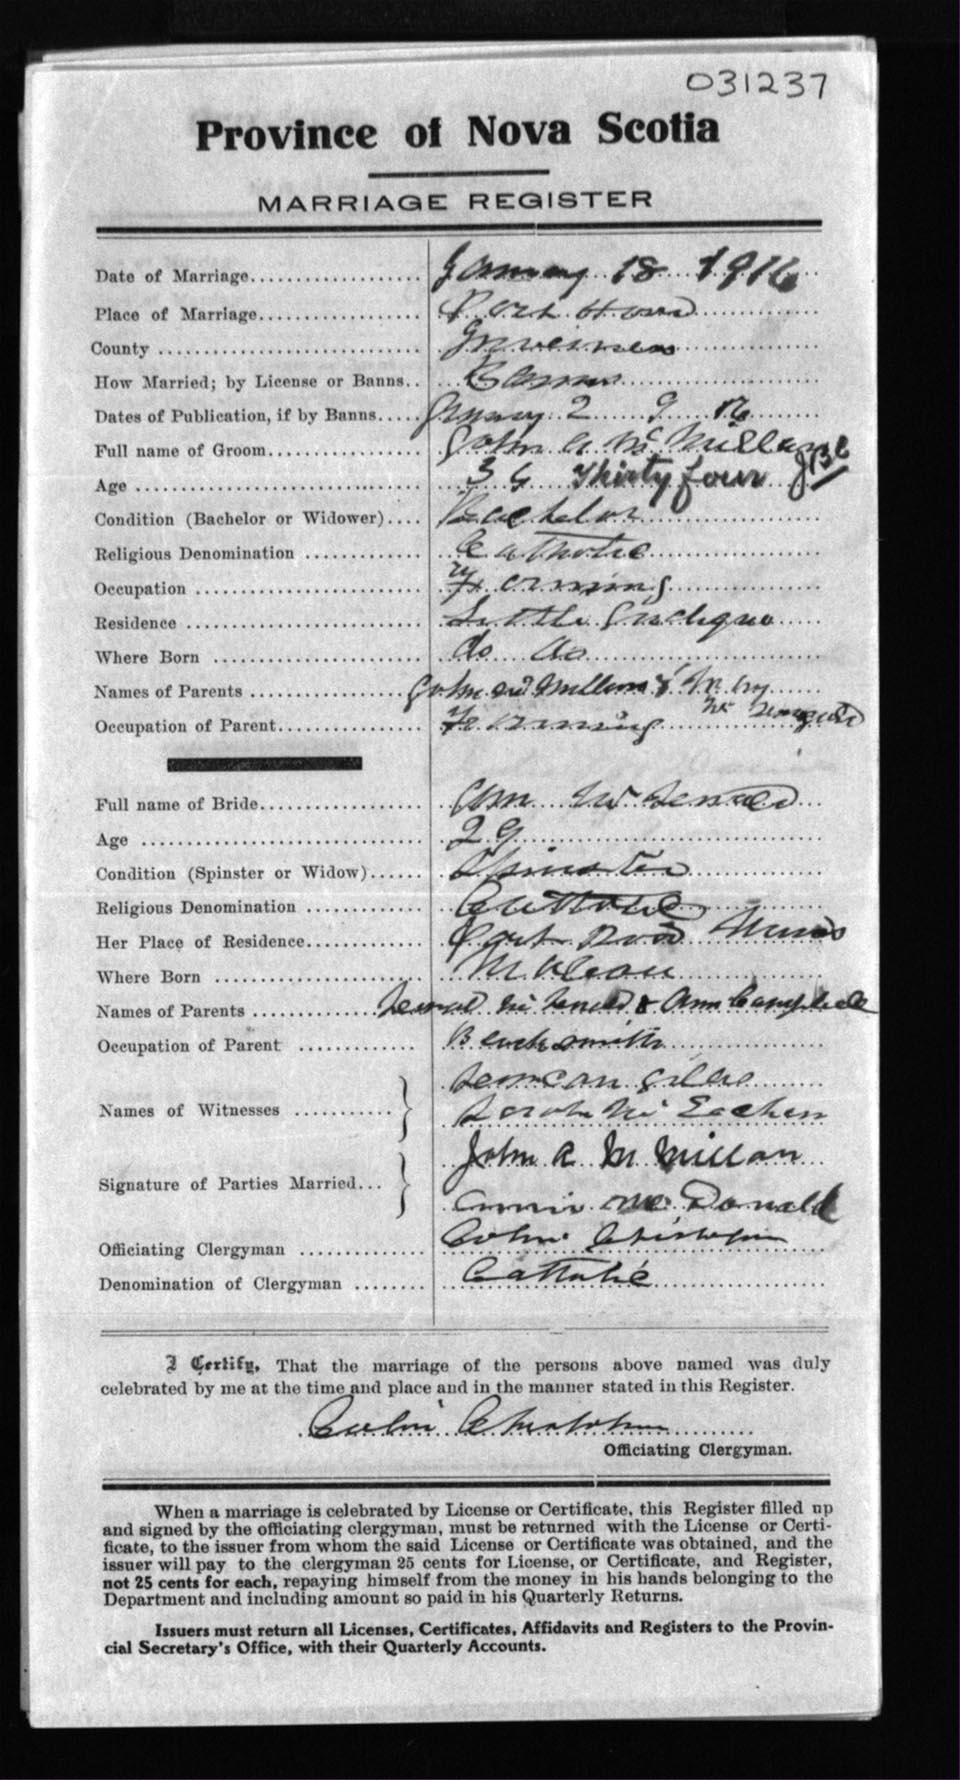 031237
Province of Nova Scotia
MARRIAGE REGISTER
Date of Marriage January 18 1916
Place of Marriage Port Hood
County Inverness
How Married; by License or Banns Banns
Dates of Publication, if by Banns January 2 9 16
Full name of Groom John A McMillan
Age 34 Thirty four
Condition (Bachelor or Widower) Bachelor
Religious Denomination Catholic
Occupation Farming
Residence Little Judique
Where Born do do
Names of Parents John McMillan & Mary
Occupation of Parent Farming Mc Donald
Full name of Bride Ann McDonald
Age 29
Condition (Spinster or Widow) Spinster
Religious Denomination Catholic
Her Place of Residence Port Hood Mines
Where Born Mabou
Names of Parents Mc Donald & Ann Campbell
Occupation of Parent Blacksmith
Duncan Gillis
Names of Witnesses
Sarah Mc Eachen
John A McMillan
Signature of Parties Married...
Annie McDonald
Officiating Clergyman Colin Chisholm
Denomination of Clergyman Catholic
I Certify, That the marriage of the persons above named was duly
celebrated by me at the time and place and in the manner stated in this Register.
Colin Chisholm
Officiating Clergyman.
When a marriage is celebrated by License or Certificate, this Register filled up
and signed by the officiating clergyman, must be returned with the License or Certi-
ficate, to the issuer from whom the said License or Certificate was obtained, and the
issuer will pay to the clergyman 25 cents for License, or Certificate, and Register,
not 25 cents for each, repaying himself from the money in his hands belonging to the
Department and including amount so paid in his Quarterly Returns.
Issuers must return all Licenses, Certificates, Affidavits and Registers to the Provin-
cial Secretary's Office, with their Quarterly Accounts.